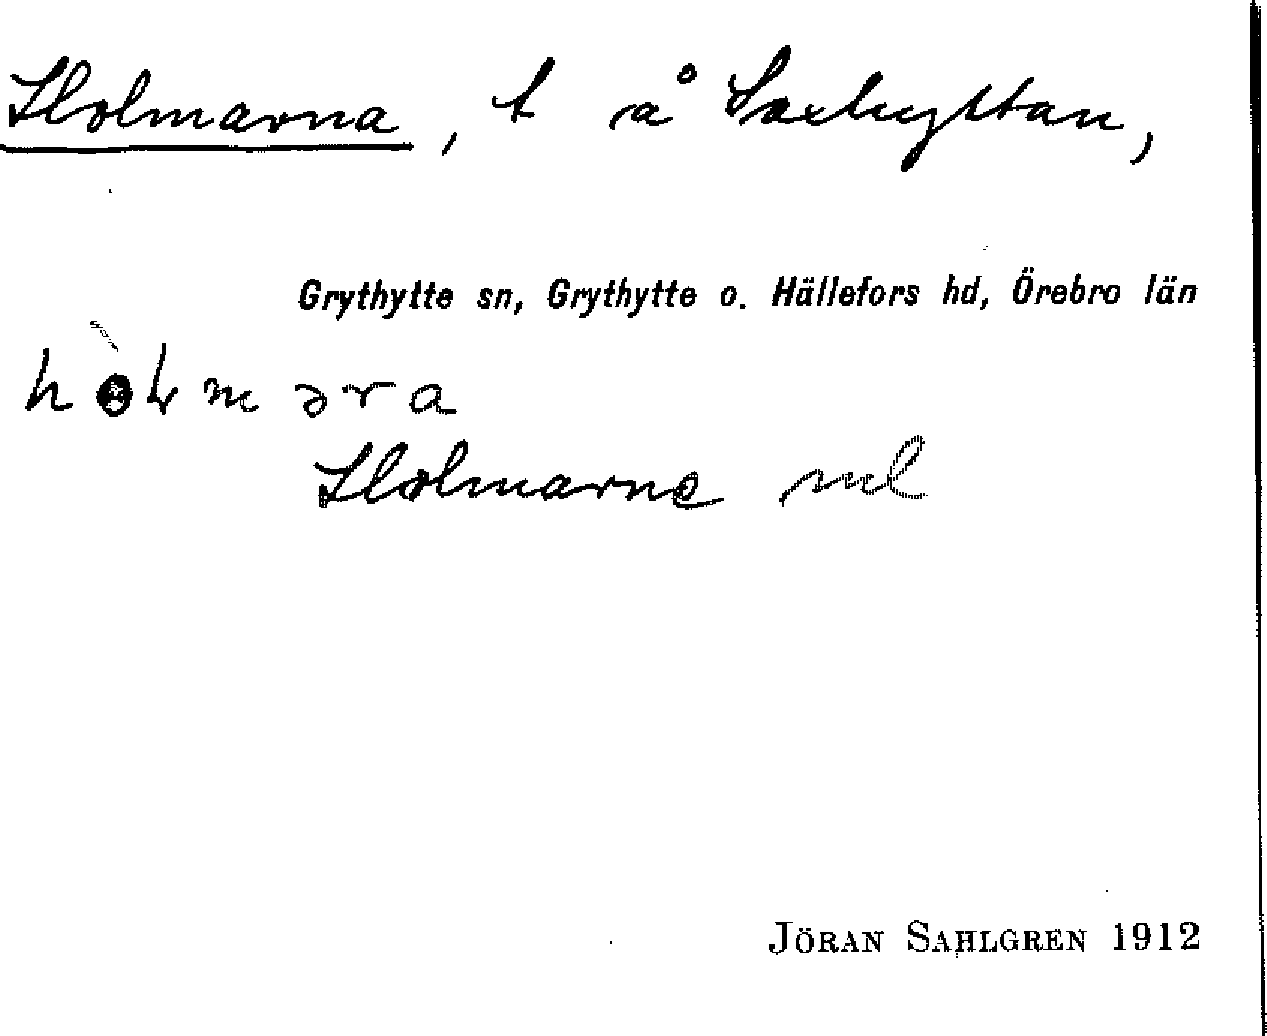 Holmarna, t å Saxhyttan,
Grythytte sn, Grythytte o. Hällefors hd, Örebro län
Holmarne
JÖRAN SAHLGREN 1912